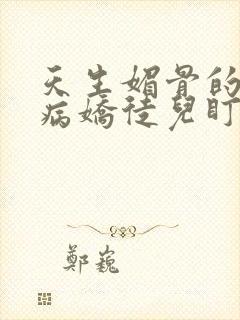 天生媚骨的
病嬌徒兒盯
鄭巍